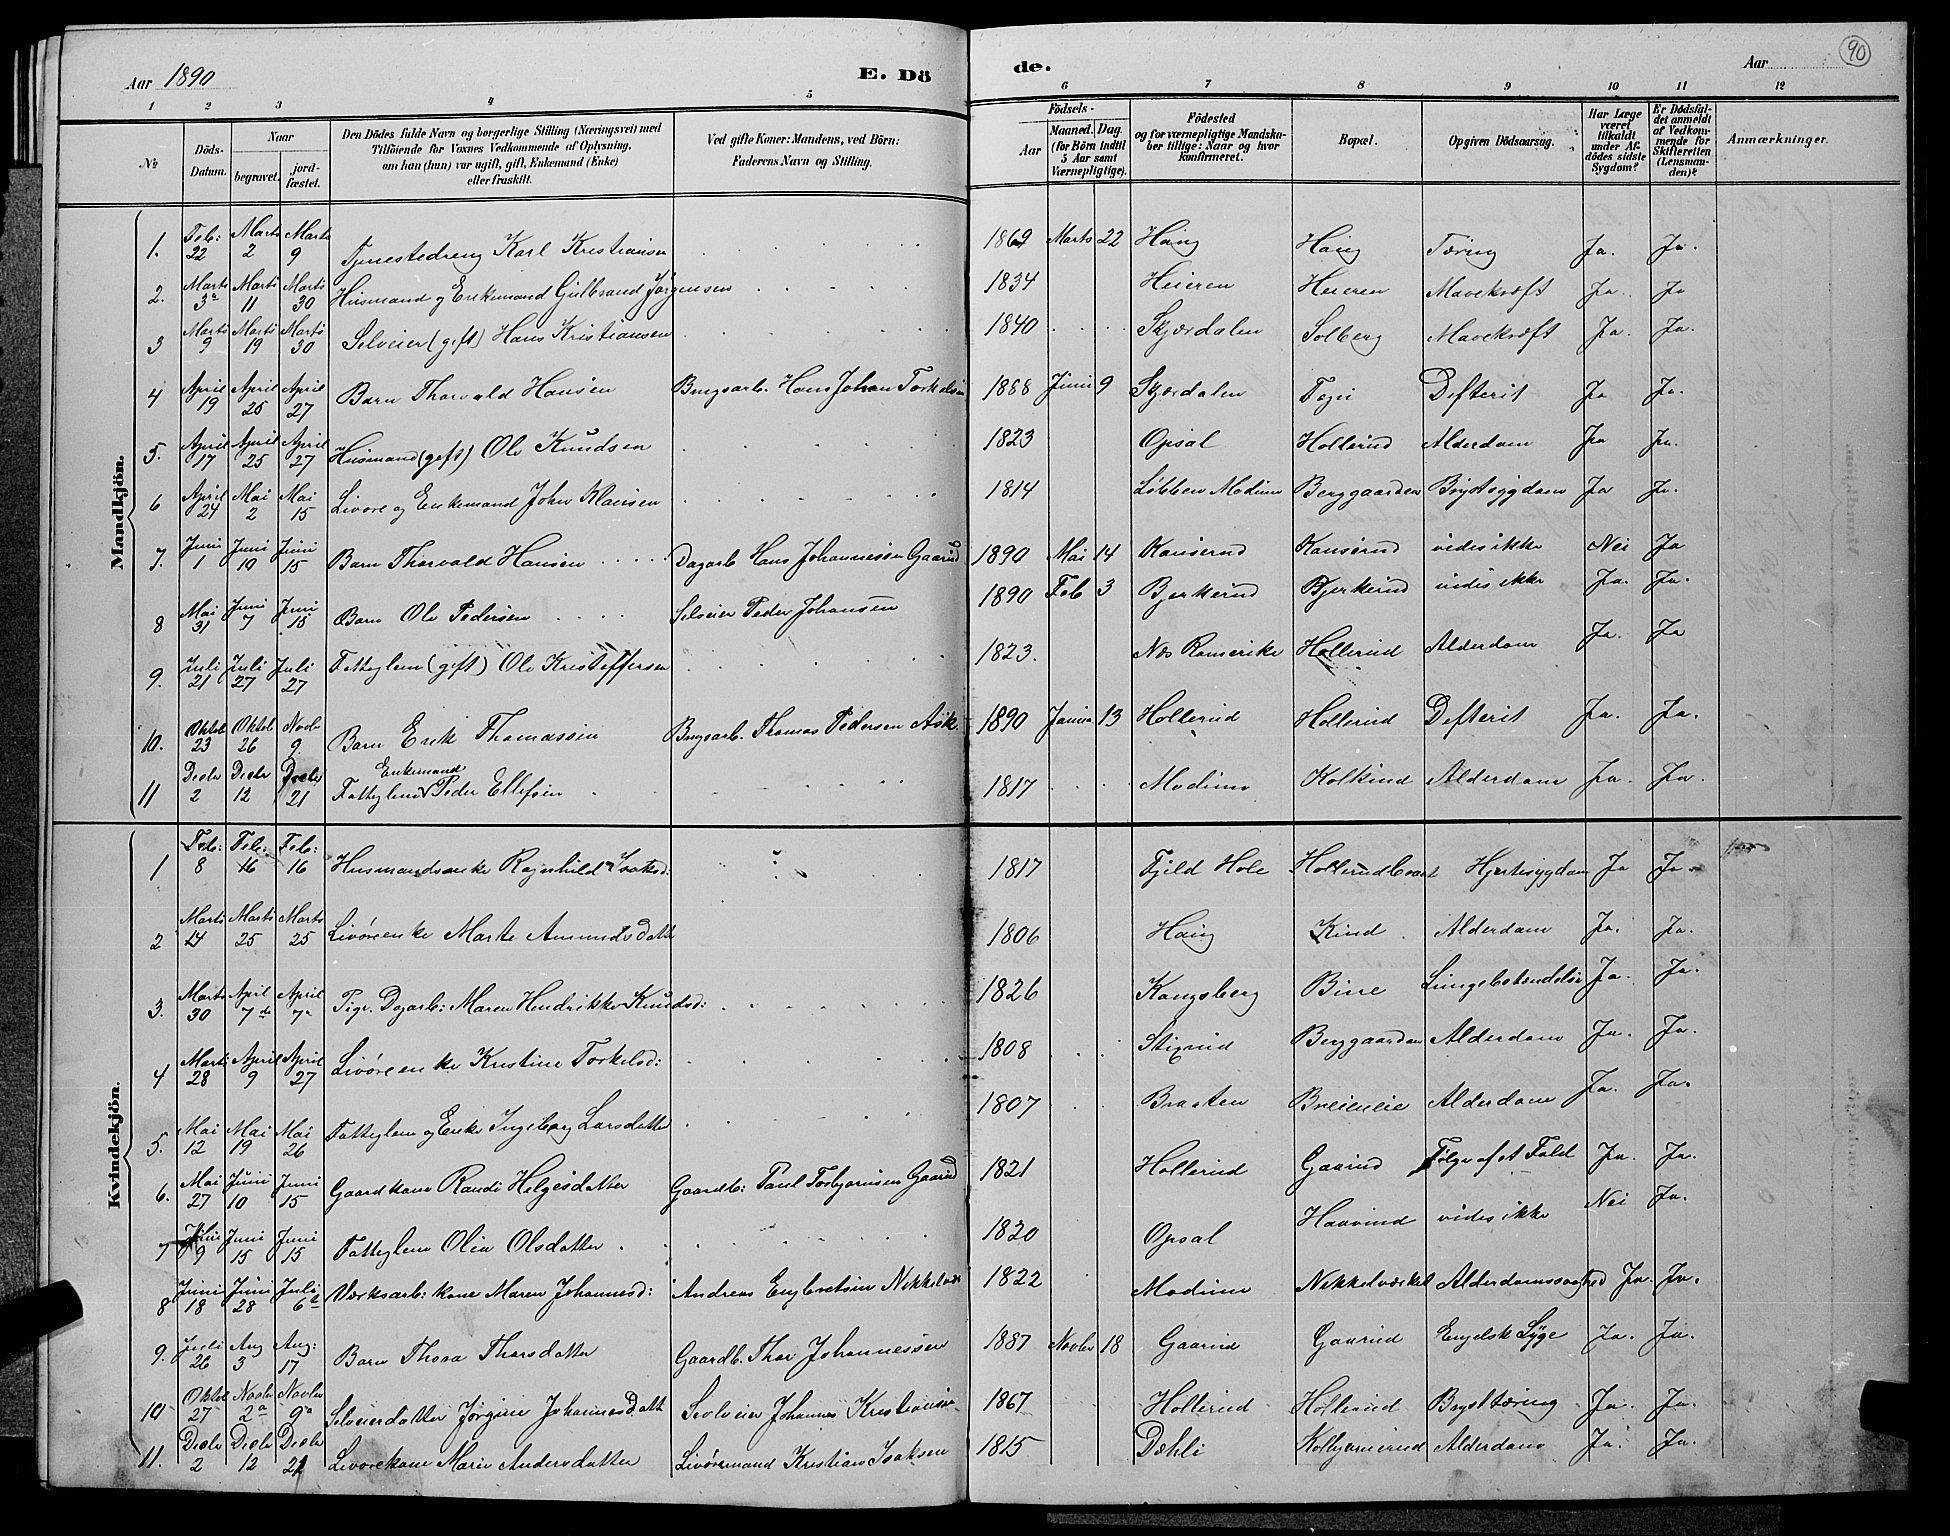 Aar 1890
E. Dö
de.
Aar
90
1 2 3 4 5 6 7 8 9 10 11 12
№ | Döds-Datum. | Naar begravet. | jordfæstet. | Den Dödes fulde Navn og borgerlige Stilling (Næringsvei) med Tilföiende for Voxnes Vedkommende af Oplysning, om han (hun) var ugift, gift, Enkemand (Enke) eller fraskilt. | Ved gifte Koner: Mandens, ved Börn: Faderens Navn og Stilling. | Födsels- Aar | Maaned. Dag. (for Börn indtil 5 Aar samt Værnepligtige). | Födested og for værnepligtige Mandskaber tillige: Naar og hvor konfirmeret. | Bopæl. | Opgiven Dödsaarsag. | Har Læge været tilkaldt under Afdödes sidste Sygdom? | Er Dödsfaldet anmeldt af Vedkommende for Skifteretten (Lensmanden)? | Anmærkninger.
Mandkjön.
1. | Feb: 22 | Marts 2 | Marts 9 | Tjenestedreng Karl Kristiansen | | 1869 | Marts 22 | Haug | Haug | Tæring | Ja. | Ja.
2. | Marts 3 | Marts 11 | Marts 30 | Husmand og Enkemand Gulbrand Jørgensen | | 1834 | | Heieren | Heieren | Mavekræft | Ja. | Ja
3 | Marts 9 | Marts 19 | Marts 30 | Selveier (gift) Hans Kristiansen | | 1840 | | Skjærdalen | Solberg | Mavekræft | Ja. | Ja.
4 | April 19 | April 25 | April 27 | Barn Thorvald Hansen | Brugsarb. Hans Johan Torkelsen | 1888 | Juni 9 | Skjærdalen | | Defterit | Ja | Ja.
5. | April 17 | April 25 | April 27 | Husmand (gift) Ole Knudsen | | 1823 | | Opsal | Hollerud | Alderdom | Ja | Ja.
6 | April 24 | Mai 2 | Mai 15 | Livøre og Enkemand John Klausen | | 1814 | | Løbben Modum | Berggaarden | Brystsygdom | Ja | Ja.
7. | Juni 1 | Juni 19 | Juni 15 | Barn Thorvald Hansen | Dagarb Hans Johannessen Gaarud | 1890 | Mai 14 | Kanserud | Kanserud | vides ikke | Nei | Ja
8 | Mai 31 | Juni 7 | Juni 15 | Barn Ole Pedersen | Selveier Peder Johansen | 1890 | Feb 3 | Bjerkerud | Bjerkerud | vides ikke | Ja. | Ja.
9. | Juli 21 | Juli 27 | Juli 27 | Fattiglem (gift) Ole Kristoffersen | | 1823. | | Næs Romerike | Hollerud | Alderdom | Ja. | Ja
10. | Oktob 23 | Oktob 26 | Novb 9. | Barn Erik Thomassen | Brugsarb. Thomas Pedersen Ask. | 1890 | Janua 13 | Hollerud | Hollerud | Defterit | Ja. | Ja.
11 | Decbr 2 | Decbr 12 | Decbr 21 | Fattiglem Enkemand Peder Ellefsen | | 1817 | | Modum | | Alderdom | Ja. | Ja.
Kvindekjön.
1 | Feb: 8 | Feb: 16 | Feb: 16 | Husmandsenke Ragnhild Isaksd: | | 1817 | | Fjeld Hole | | Hjertesygdom | Ja | Ja.
2 | Marts 14 | Marts 25 | Marts 25 | Livøreenke Marte Amundsdatt | | 1806 | | Haug | Rud | Alderdom | Ja. | Ja.
3. | Marts 30 | April 7de | April 7 | Pige. Dagarb: Maren Hendrikke Knudsd: | | 1826 | | Kongsberg | | Lungebetendelse | Ja. | Ja.
4 | Marts 28 | April 9 | April 27 | Livøreenke Kristine Torkelsd: | | 1808 | | Stixrud | Berggaarden | Alderdom | Ja. | Ja.
5. | Mai 12 | Mai 19 | Mai 26 | Fattiglem og Enke Ingeborg Larsdatter | | 1807 | | Braaten | Breieneie | Alderdom | Ja. | Ja.
6. | Mai 27 | Juni 10 | Juni 15 | Gaardkone Randi Helgesdatter | Gaardb: Paul Torbjørnsen Gaarud | 1821 | | Hollerud | Gaarud | Følge af et Fald | Ja. | Ja.
7 | Juni 9 | Juni 15 | Juni 15 | Fattiglem Olia Olsdatter | | 1820 | | Opsal | Haavind | vides ikke | Nei | Ja.
8 | Juni 18 | Juni 28 | Juli 6 | Værksarb: kone Maren Johannesd: | Andreas Engbretsen Nikkelvær | 1822 | | Modum | Nikkelværket | Alderdomssvaghed | Ja. | Ja.
9. | Juli 26 | Aug 3 | Aug: 17 | Barn Thora Thorsdatter | Gaardb. Thor Johannessen | 1887 | Novbr 18 | Gaarud | Gaarud | Engelsk Syge | Ja. | Ja.
10 | Oktob 27 | Novbr 2 | Novbr 9 | Selveierdatter Jørgine Johannesdatt | Selveier Johannes Kristiansen | 1867 | | Hollerud | Hollerud | Brysttæring | Ja. | Ja.
11. | Decbr 2 | Decbr 12 | Decbr 21 | Livørekone Marie Andersdatter | Livøremand Kristian Isaksen | 1815 | | Dæhli | Kolbjørnrud | Alderdom | Ja. | Ja.